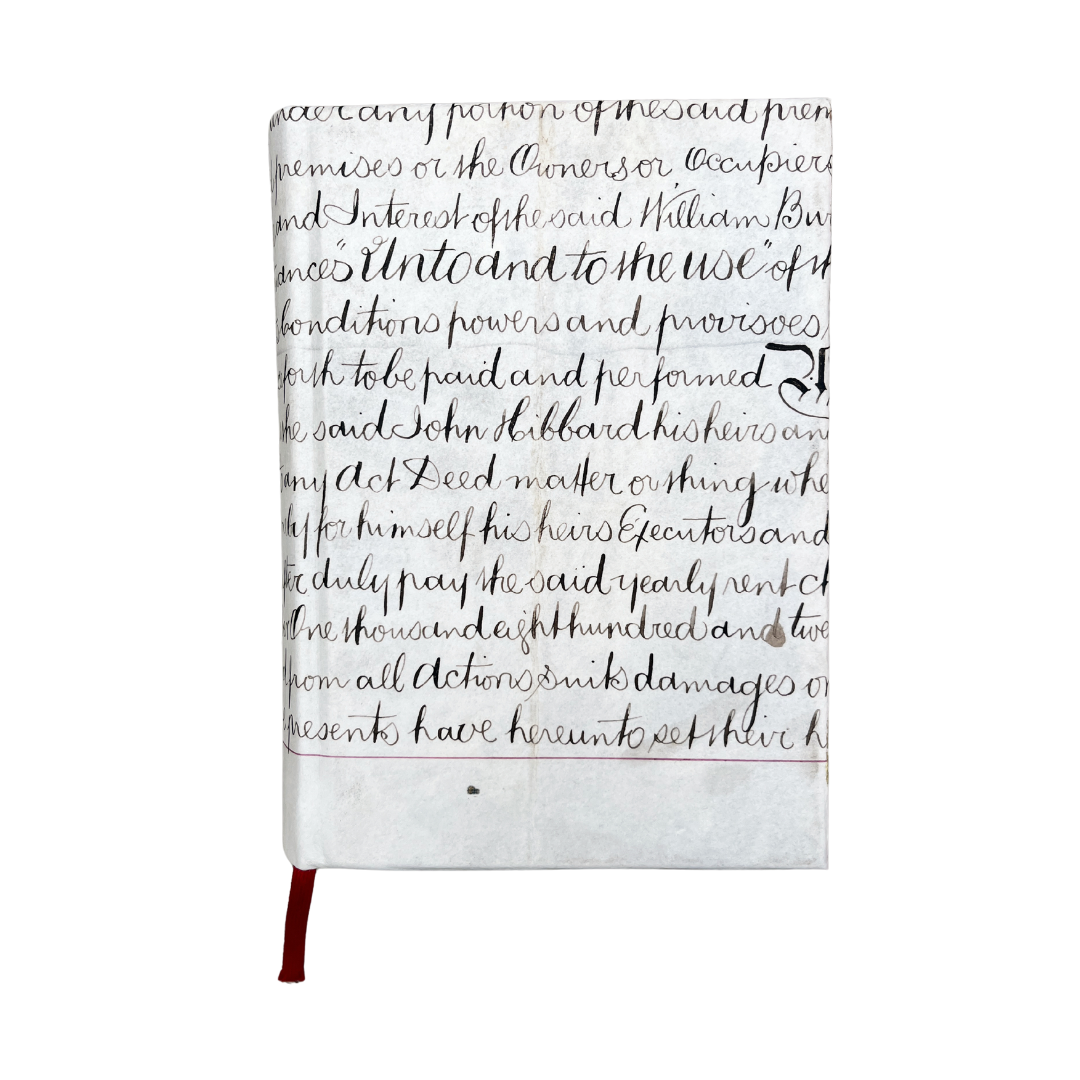 under any portion of the said prem
premises or the Owners or Occupiers
and Interest of the said William Bur
ances "Unto and to the use" of th
Conditions powers and provisoes
forth to be paid and performed
he said John Hibbard his heirs an
any Act Deed matter or thing whe
for himself his heirs Executors and
ter duly pay the said yearly rent ch
One thousand eight hundred and twe
from all Actions suits damages or
presents have hereunto set their h